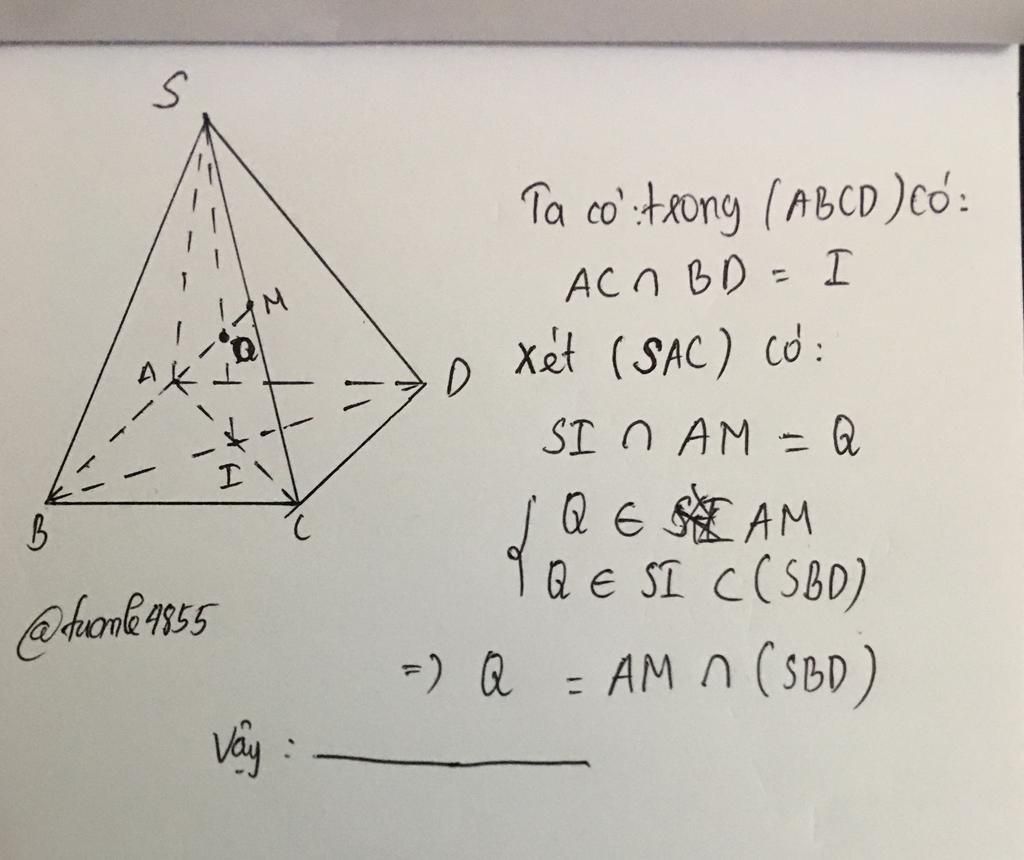 S
M
Q
A
D
I
B
C
@tuonle4855
Ta có: trong (ABCD) có:
AC ∩ BD = I
Xét (SAC) có:
SI ∩ AM = Q
{ Q ∈ AM
Q ∈ SI ⊂ (SBD)
=> Q = AM ∩ (SBD)
Vậy :